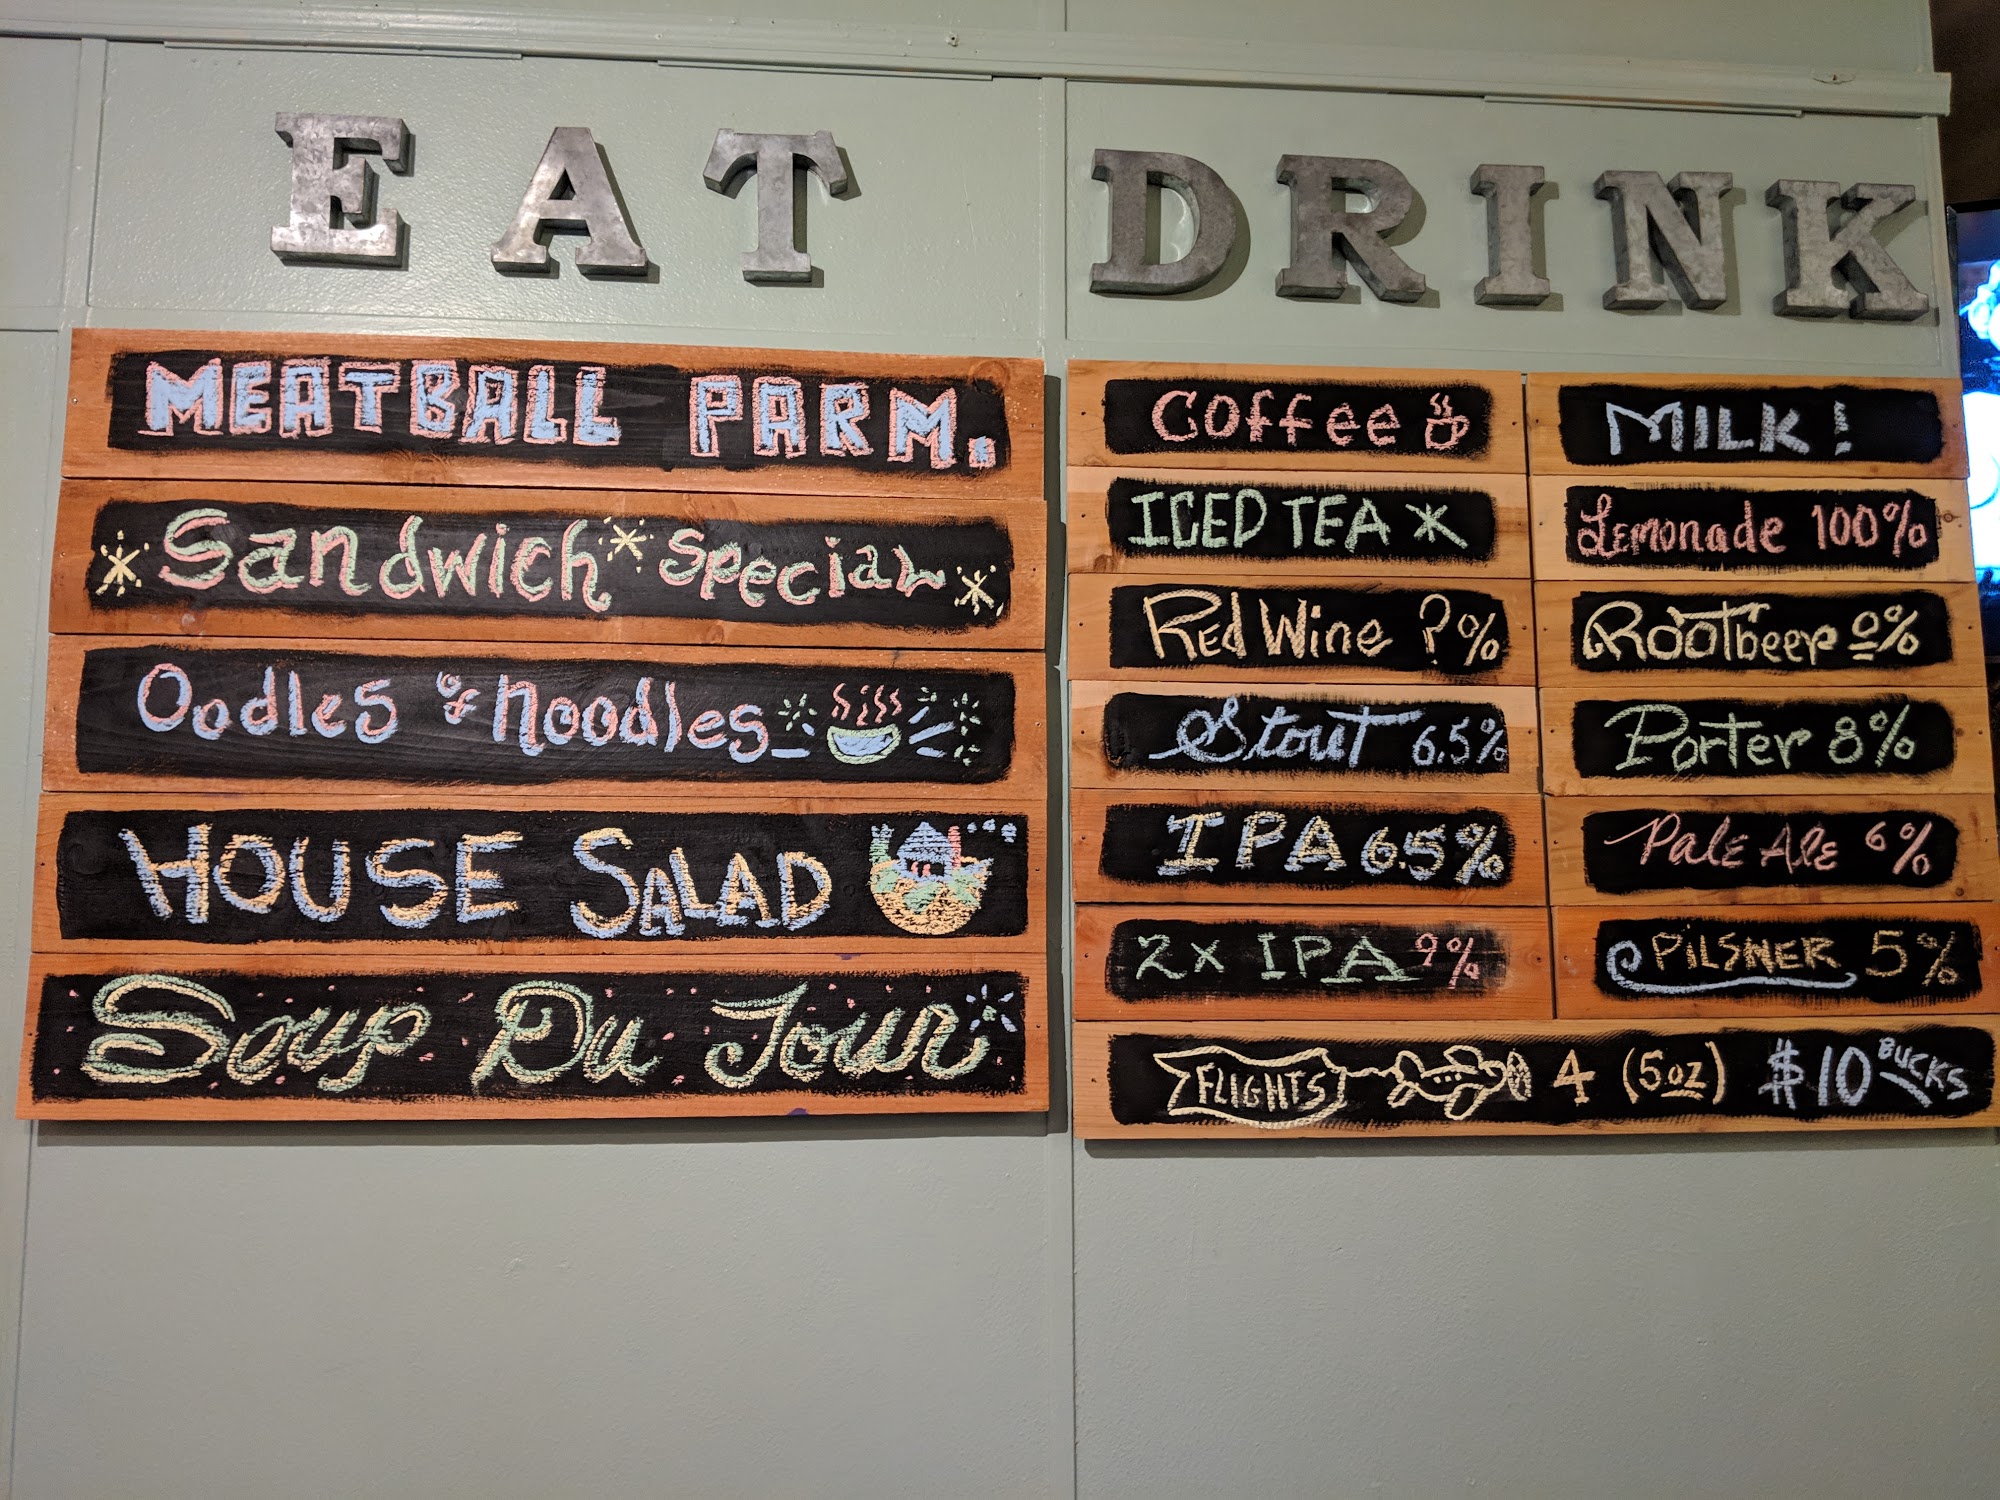 EAT
MEATBALL PARM.
Sandwich Special
Oodles of Noodles
HOUSE SALAD
Soup Du Jour
DRINK
Coffee
ICED TEA
Red Wine ?%
Stout 6.5%
IPA 6.5%
2x IPA 9%
MILK!
Lemonade 100%
Rootbeer 0%
Porter 8%
Pale Ale 6%
PILSNER 5%
FLIGHTS 4 (5oz) $10 BUCKS